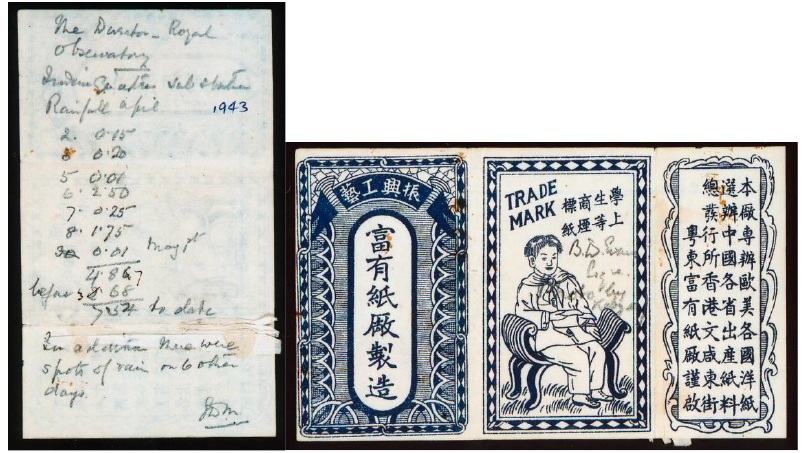 The Director Royal
Observatory
Indian Quarters sub station
Rainfall April 1943
2. 0.15
3 0.20
5 0.01
6. 2.50
7. 0.25
8. 1.75
30 0.01 May 1st
4.867
before
7.54 to date
In addition there were
spots of rain on 6 other
days.
振興工藝
富有紙廠製造
TRADE
MARK
學生商標
上等煙紙
B.D. Evans
本廠專辦歐美各國洋紙
選辦中國各省出産紙料
總發行所香港文咸東街
粤東富有紙廠謹啟